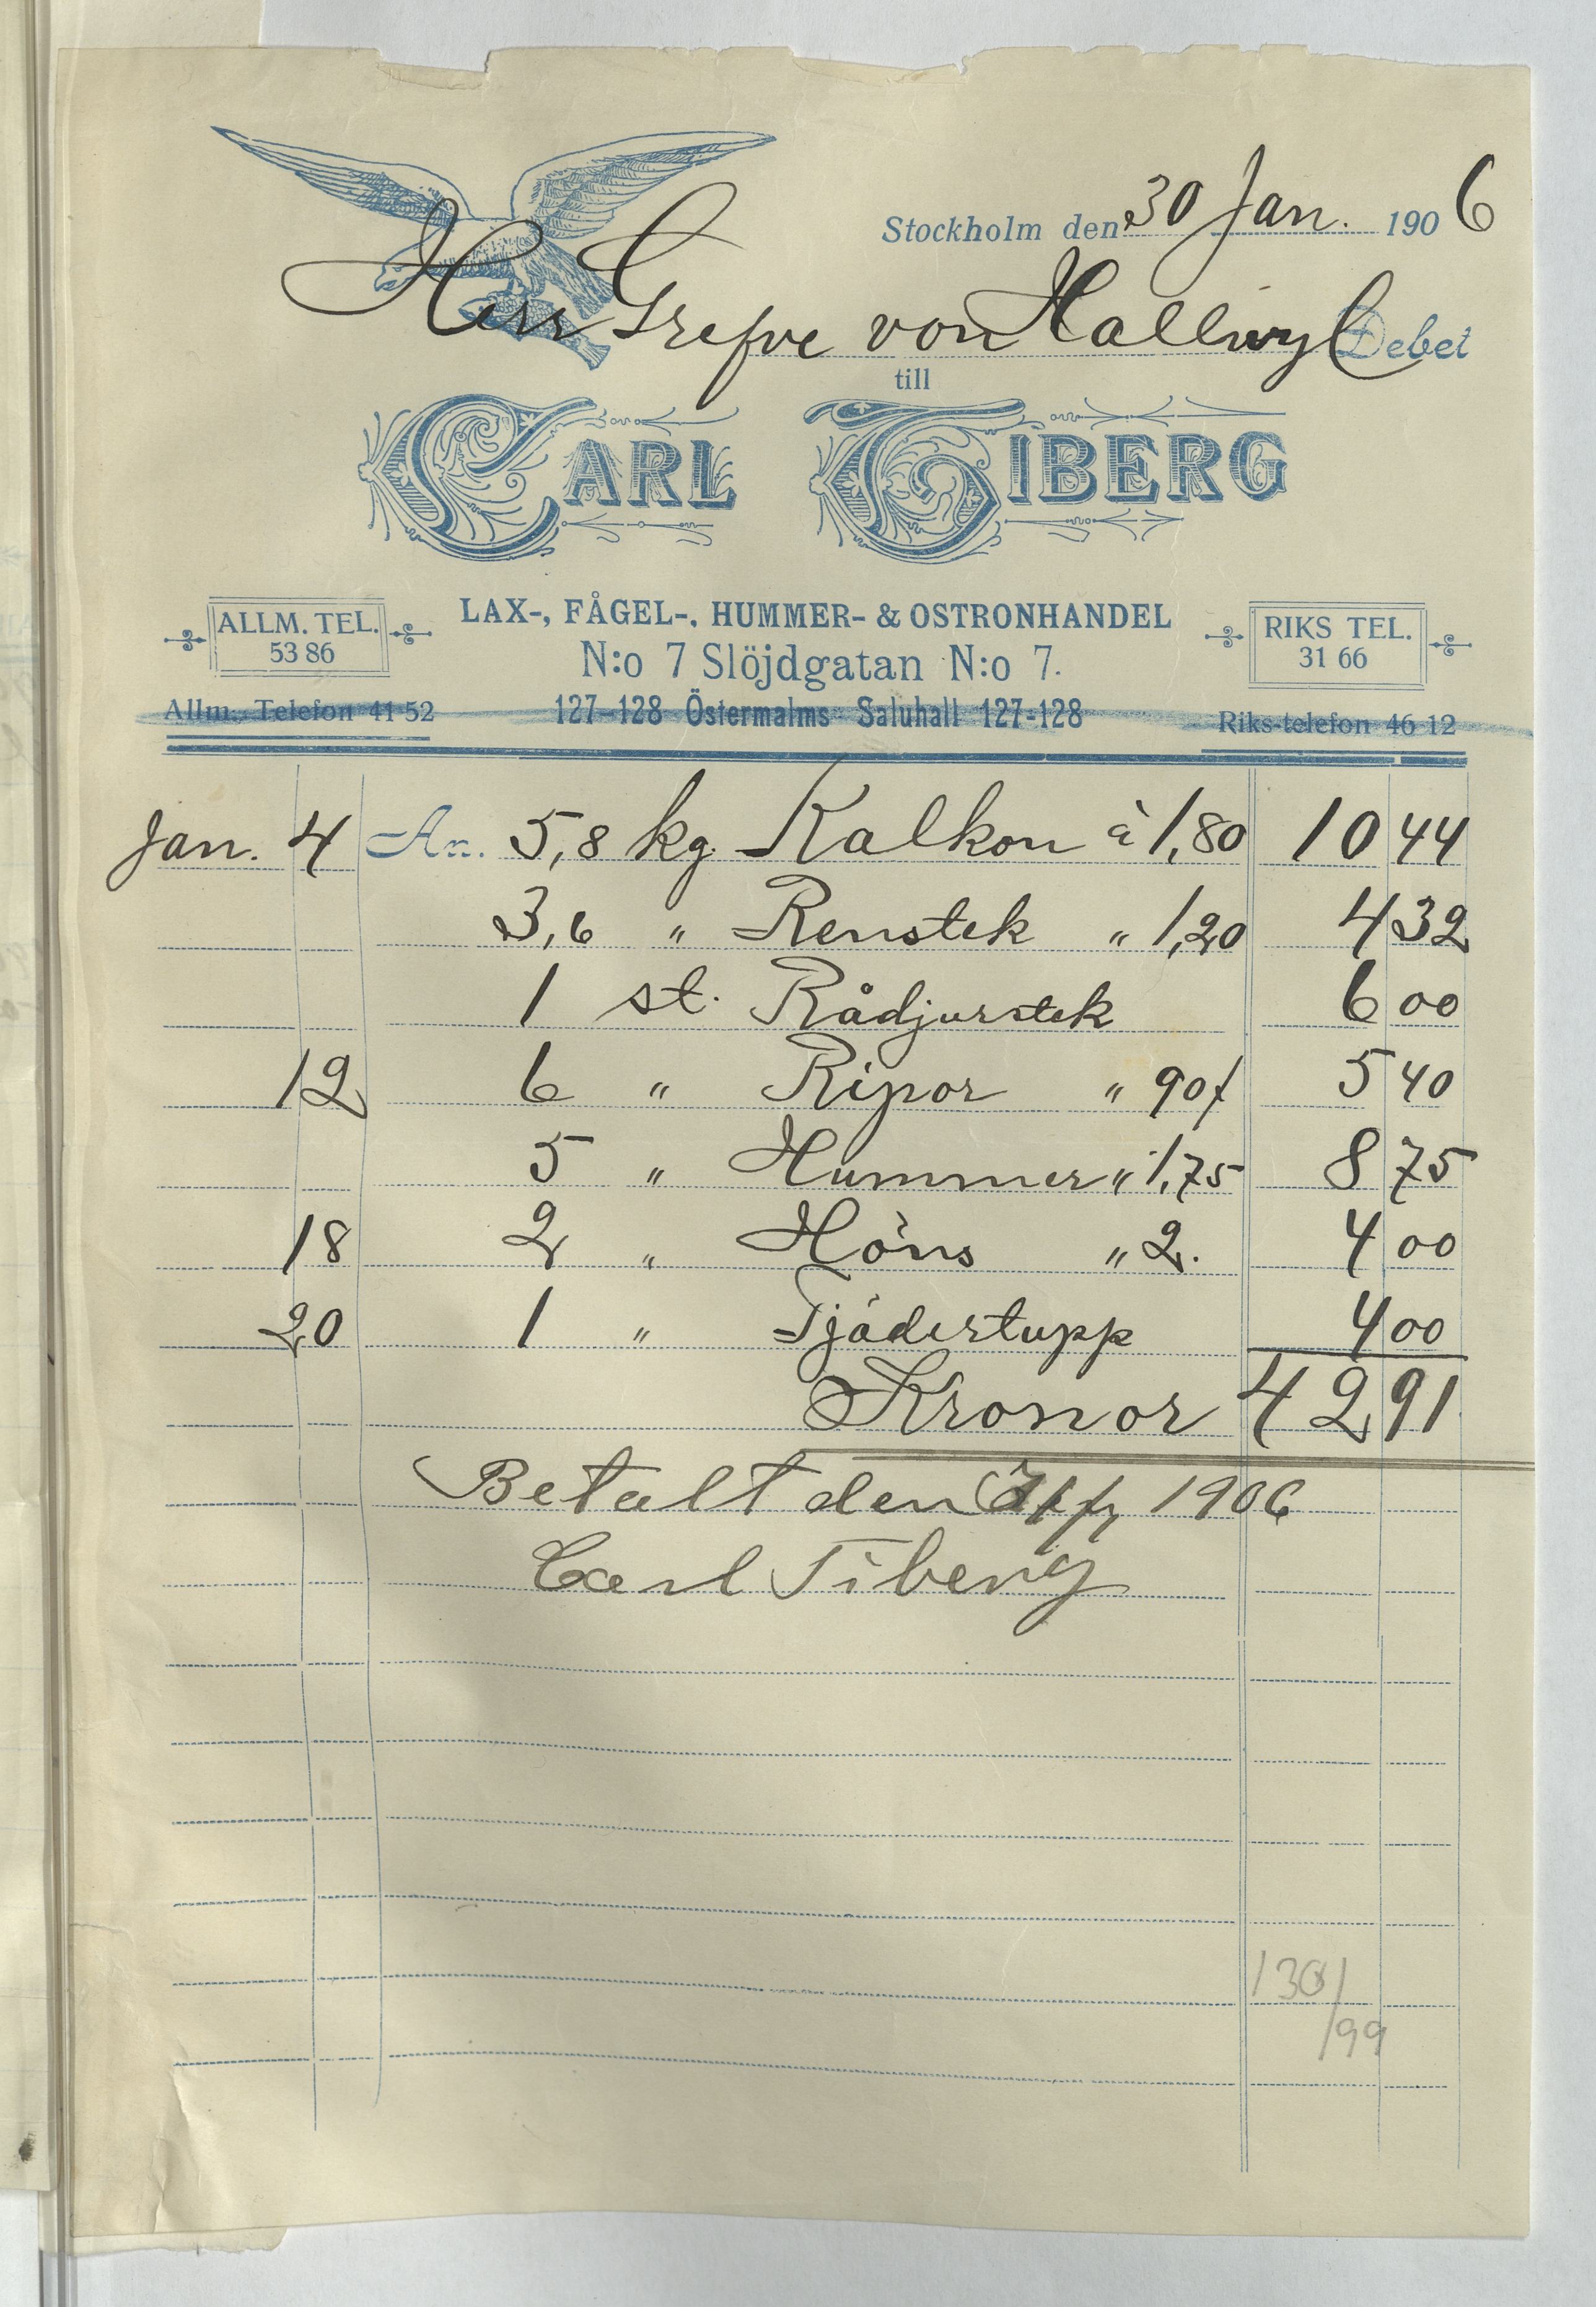 Stockholm den 30 Jan. 1906
Herr Grefve von Hallwyl Debet
till
CARL TIBERG
LAX-, FÅGEL-, HUMMER- & OSTRONHANDEL
ALLM. TEL.
53 86
N:o 7 Slöjdgatan N:o 7.
RIKS TEL.
31 66
Allm. Telefon 41 52
127-128 Östermalms Saluhall 127-128
Riks-telefon 46 12
Jan. 4 An. 5,8 kg. Kalkon à 1,80 10 44
3,6 " Renstek " 1,20 4 32
1 st. Rådjurstek 6 00
12 6 " Ripor " 90 5 40
5 " Hummer " 1,75 8 75
18 2 " Höns " 2. 4 00
20 1 " Tjädertupp 4 00
Kronor 42 91
Betalt den 1906
Carl Tiberg
130/
/99